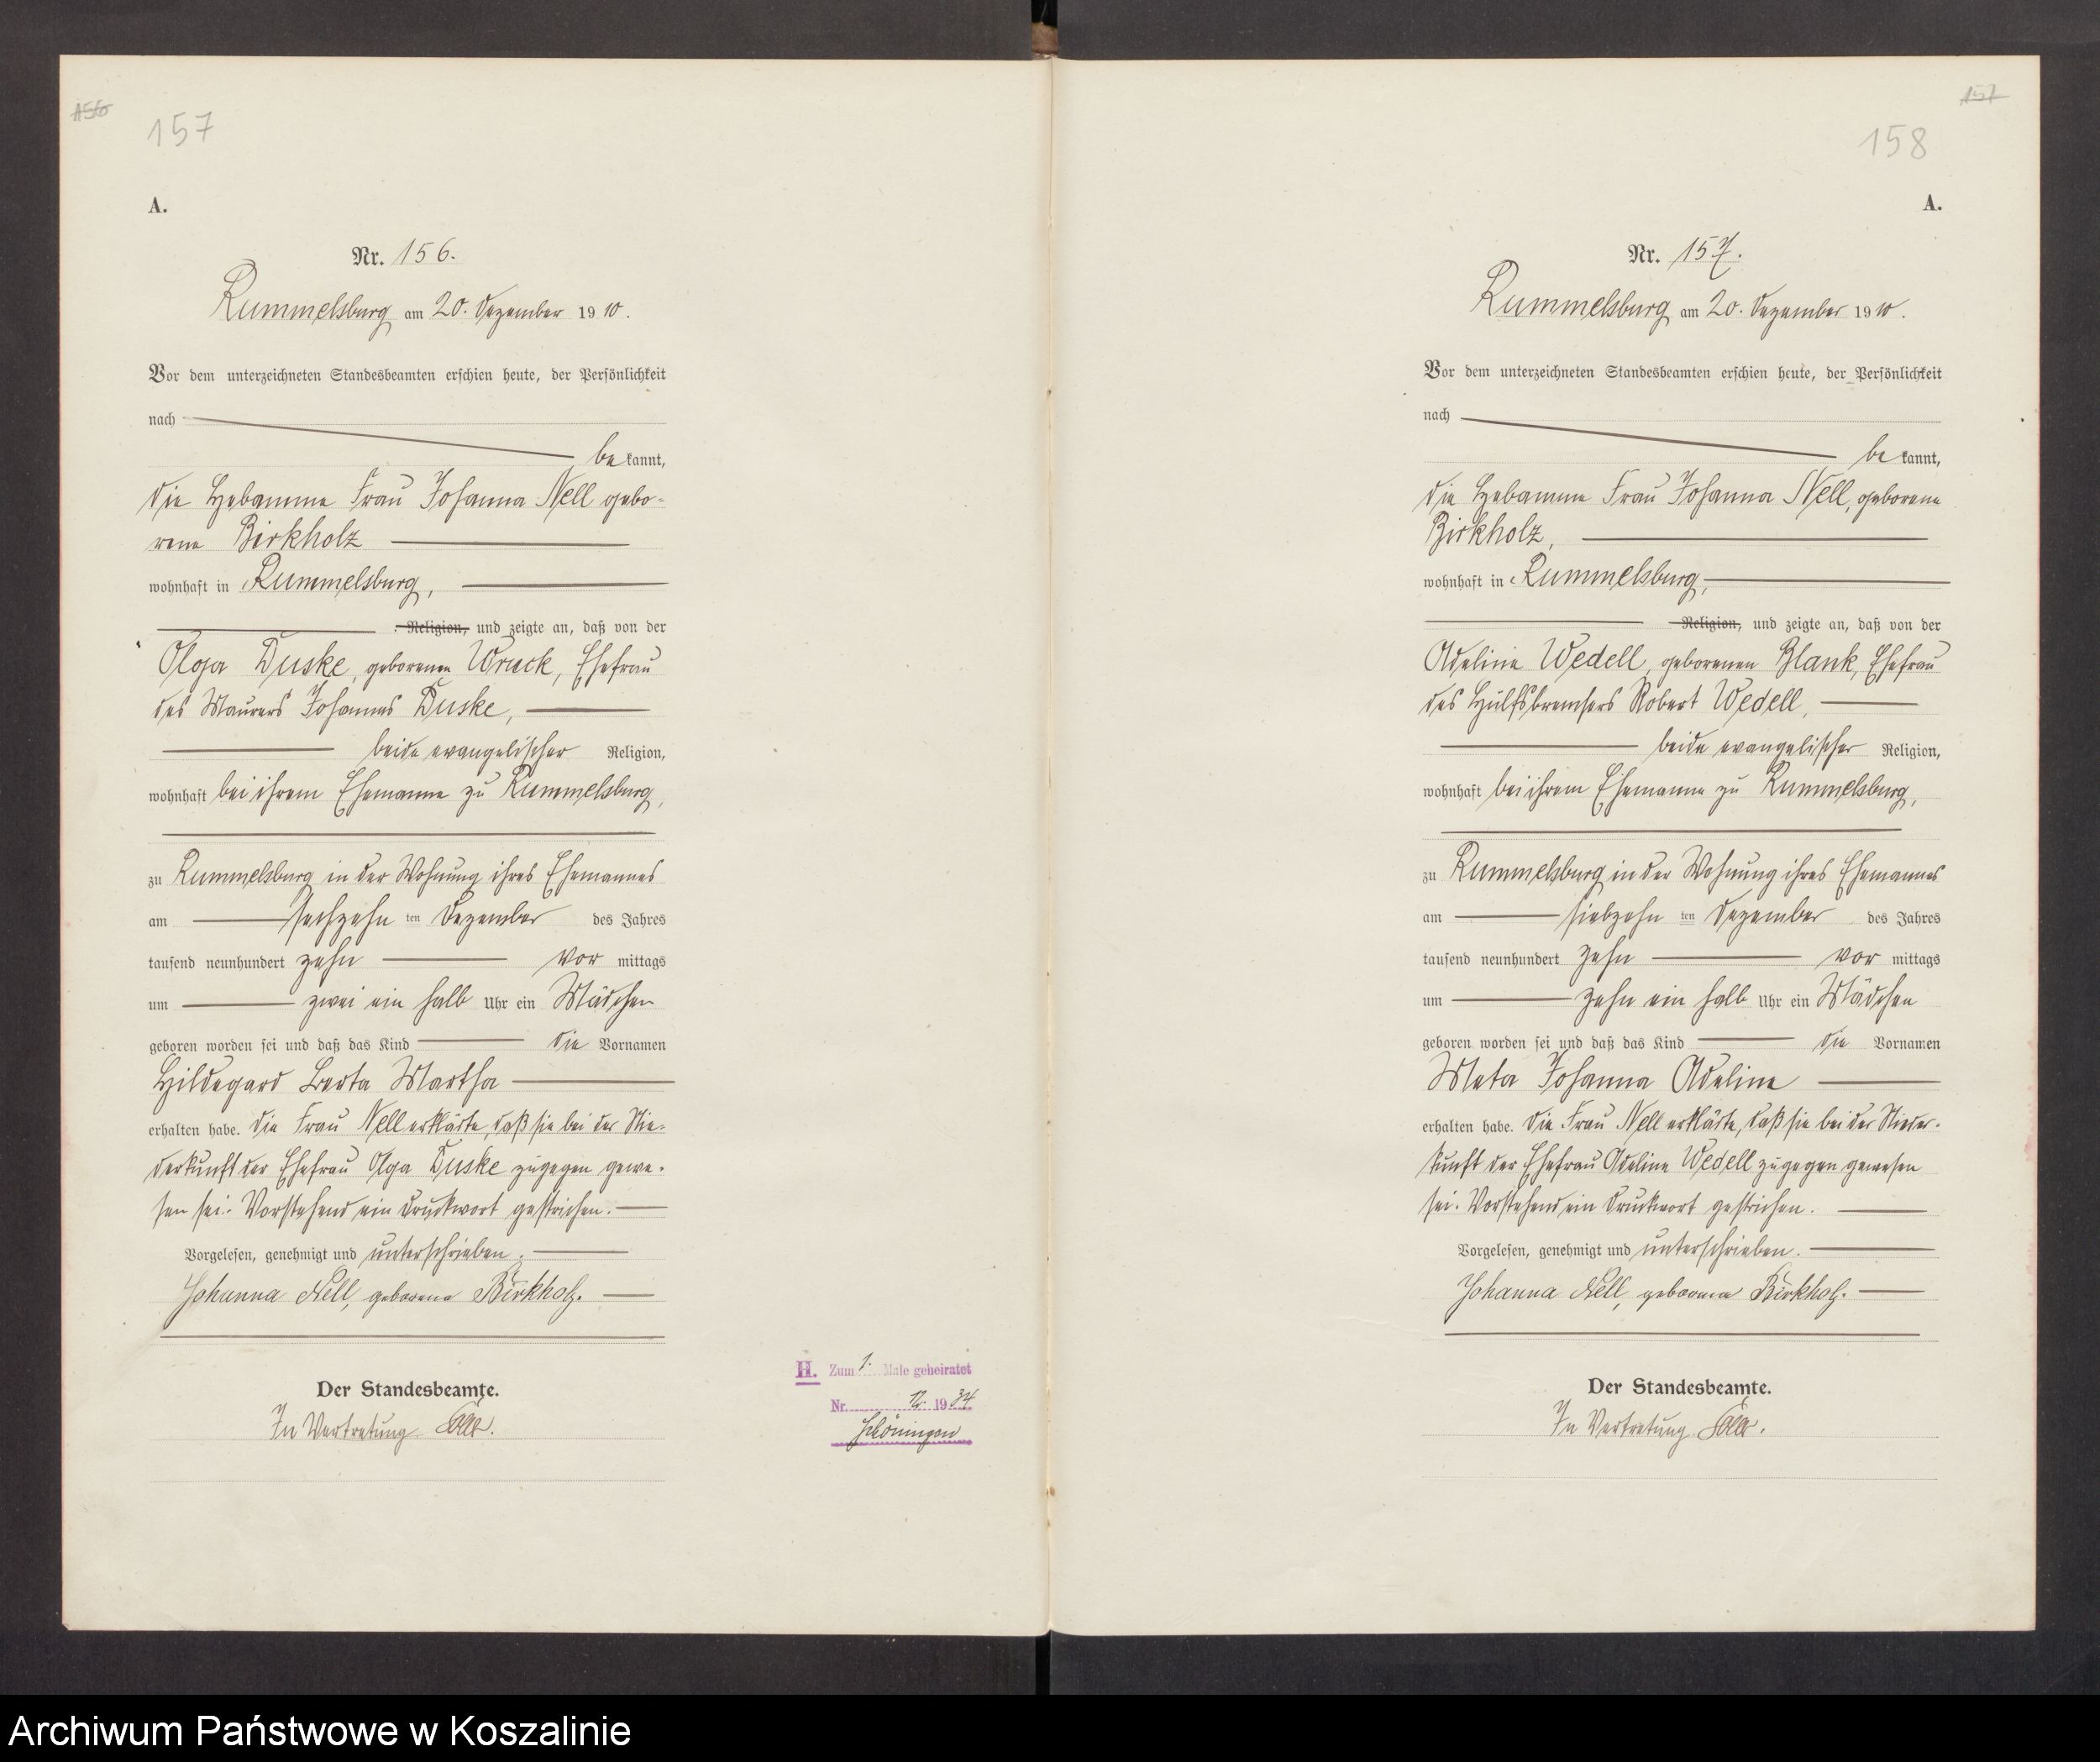 156
157
A.
Nr. 156.
Rummelsburg am 20. Dezember 1910.
Vor dem unterzeichneten Standesbeamten erschien heute, der Persönlichkeit
nach
bekannt,
die Hebamme Frau Johanna Nell gebo-
rene Birkholz
wohnhaft in Rummelsburg,
Religion, und zeigte an, daß von der
Olga Duske, geborenen Wruck, Ehefrau
des Maurers Johannes Duske,
beide evangelischer Religion,
wohnhaft bei ihrem Ehemanne zu Rummelsburg,
zu Rummelsburg in der Wohnung ihres Ehemannes
am sechzehnten Dezember des Jahres
tausend neunhundert zehn vormittags
um zwei ein halb Uhr ein Mädchen
geboren worden sei und daß das Kind die Vornamen
Hildegard Berta Martha
erhalten habe. Die Frau Nell erklärte, daß sie bei der Nie-
derkunft der Ehefrau Olga Duske zugegen gewe-
sen sei. Vorstehend ein Druckwort gestrichen.
Vorgelesen, genehmigt und unterschrieben.
Johanna Nell, geborene Birkholz.
Der Standesbeamte.
In Vertretung
H. Zum 1. Male geheiratet
Nr. 12. 1934
Schöningen
157
158
A.
Nr. 157.
Rummelsburg am 20. Dezember 1910.
Vor dem unterzeichneten Standesbeamten erschien heute, der Persönlichkeit
nach
bekannt,
die Hebamme Frau Johanna Nell, geborene
Birkholz,
wohnhaft in Rummelsburg,
Religion, und zeigte an, daß von der
Adeline Wedell, geborenen Blank, Ehefrau
des Hülfsbremsers Robert Wedell,
beide evangelischer Religion,
wohnhaft bei ihrem Ehemanne zu Rummelsburg,
zu Rummelsburg in der Wohnung ihres Ehemannes
am siebzehnten Dezember des Jahres
tausend neunhundert zehn vormittags
um zehn ein halb Uhr ein Mädchen
geboren worden sei und daß das Kind die Vornamen
Meta Johanna Adeline
erhalten habe. Die Frau Nell erklärte, daß sie bei der Nieder-
kunft der Ehefrau Adeline Wedell zugegen gewesen
sei. Vorstehend ein Druckwort gestrichen.
Vorgelesen, genehmigt und unterschrieben.
Johanna Nell, geborene Birkholz.
Der Standesbeamte.
In Vertretung
Archiwum Państwowe w Koszalinie